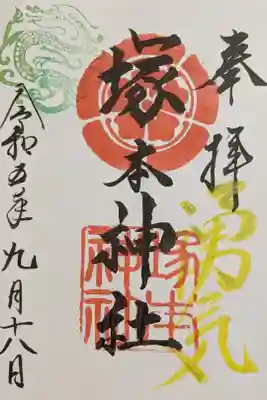 奉拝
勇気
塚本神社
塚本
神社
令和五年九月十八日